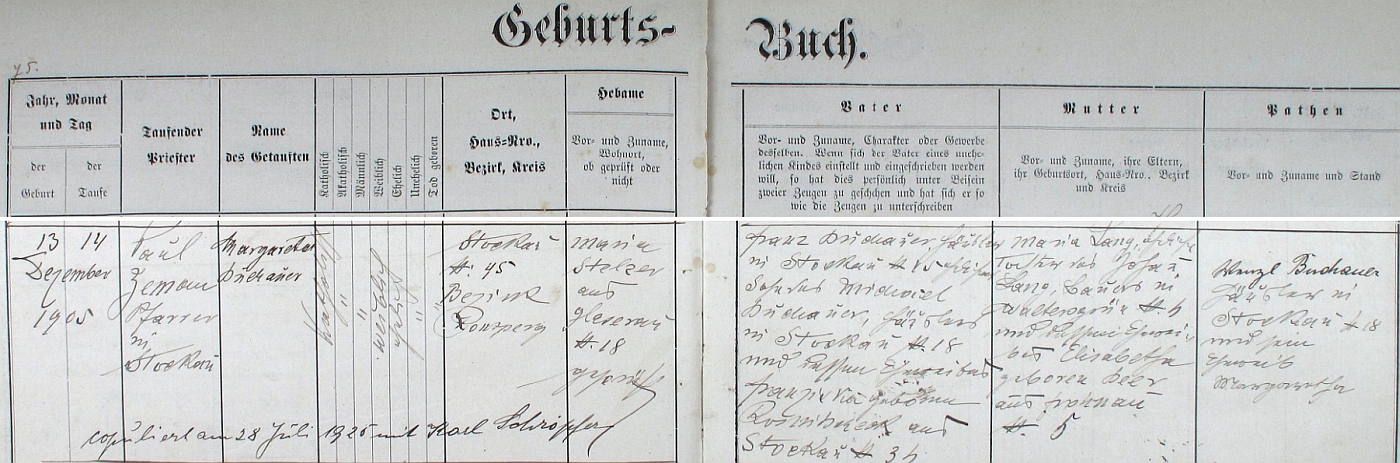 Geburts-
Buch.
Jahr, Monat
und Tag
der
Geburt
der
Taufe
Taufender
Priester
Name
des Getauften
Katholisch
Akatholisch
Männlich
Weiblich
Ehelich
Unehelich
Tod geboren
Ort,
Haus-Nro.,
Bezirk, Kreis
Hebame
Vor- und Zuname,
Wohnort,
ob geprüft oder
nicht
Vater
Vor- und Zuname, Charakter oder Gewerbe
desselben. Wenn sich der Vater eines unehe-
lichen Kindes einstellt und eingeschrieben werden
will, so hat dies persönlich unter Beisein
zweier Zeugen zu geschehen und hat sich er so
wie die Zeugen zu unterschreiben
Mutter
Vor- und Zuname, ihre Eltern,
ihr Geburtsort, Haus-Nro. Bezirk
und Kreis
Pathen
Vor- und Zuname und Stand
13
Dezember
1905
14
Paul
Zeman
Pfarrer
in
Stockau
Margareta
Buchauer
katholisch
"
"
weiblich
ehelich
"
"
Stockau
#. 45
Bezirk
Ronsperg
Maria
Stelzer
aus
#. 18
geprüft
copuliert am 28 Juli 1925 mit Karl Schröpfer
Franz Buchauer, Häusler
in Stockau # 45 ehelicher
Sohn des Michael
Buchauer, Häuslers
in Stockau #. 18
und dessen Eheweibes
Franziska geborenen
aus
Stockau # 34
Maria Lang, eheliche
Tochter des Johann
Lang, Bauers in
Waltersgrün #. 4
und dessen Ehewei-
bes Elisabetha
geboren Beer
aus
#. 5
Wenzl Buchauer
Häusler in
Stockau # 18
und sein
Eheweib
Margaretha